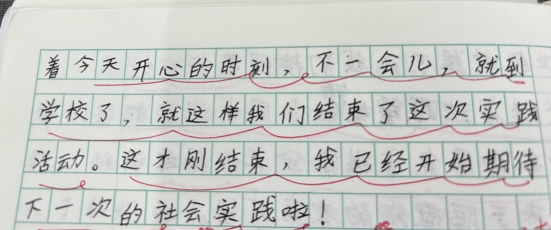 着今天开心的时刻，不一会儿，就到
学校了，就这样我们结束了这次实践
活动。这才刚结束，我已经开始期待
下一次的社会实践啦！